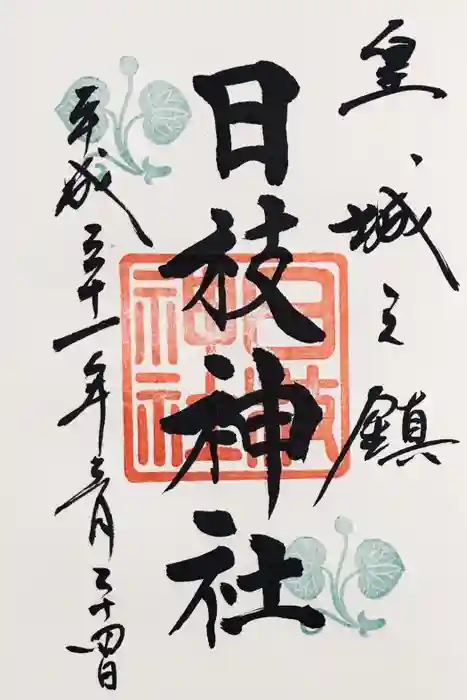 皇城之鎮
日枝神社
日枝
神社
平成三十一年三月二十四日